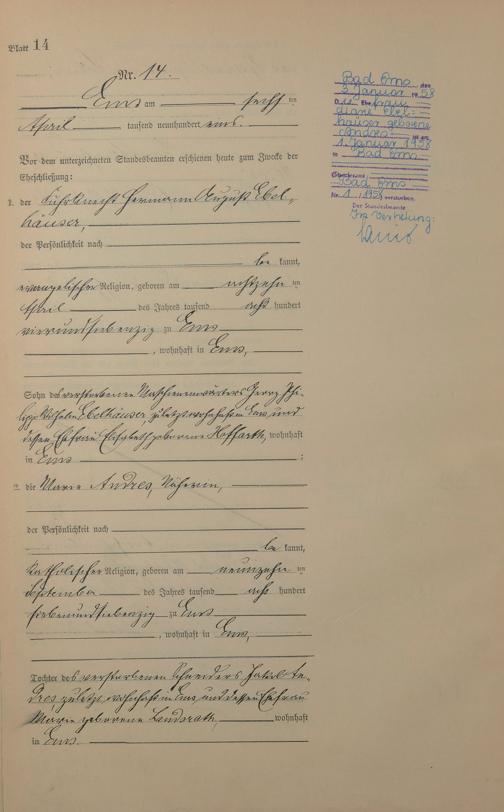 Blatt 14
Nr. 14.
Ems am sechsten
April tausend neunhundert eins.
Vor dem unterzeichneten Standesbeamten erschienen heute zum Zwecke der
Eheschließung:
1. der Hermann August Ebel-
häuser,
der Persönlichkeit nach
be kannt,
evangelischer Religion, geboren am achtzehnten
April des Jahres tausend acht hundert
vierundsiebenzig zu Ems
, wohnhaft in Ems,
Sohn des verstorbenen Maschinenwärters Georg Phi-
lipp Wilhelm Ebelhäuser, zuletzt wohnhaft in Ems und
dessen Ehefrau Elisabeth geborene Hoffarth, wohnhaft
in Ems ;
2. die Marie Andres, Näherin,
der Persönlichkeit nach
be kannt,
katholischer Religion, geboren am neunzehnten
September des Jahres tausend acht hundert
siebenundsiebenzig zu Ems
, wohnhaft in Ems,
Tochter des verstorbenen Schneiders Jakob An-
dres, zuletzt wohnhaft in Ems, und dessen Ehefrau
Marie geborene Landsrath, wohnhaft
in Ems.
Bad Ems, den
3. Januar 1958
Ebel-
häuser geborene
Andres ist am
1. Januar 1958
in Bad Ems
Standesamt
Bad Ems
Nr. 1 /1958 verstorben.
Der Standesbeamte
In Vertretung: